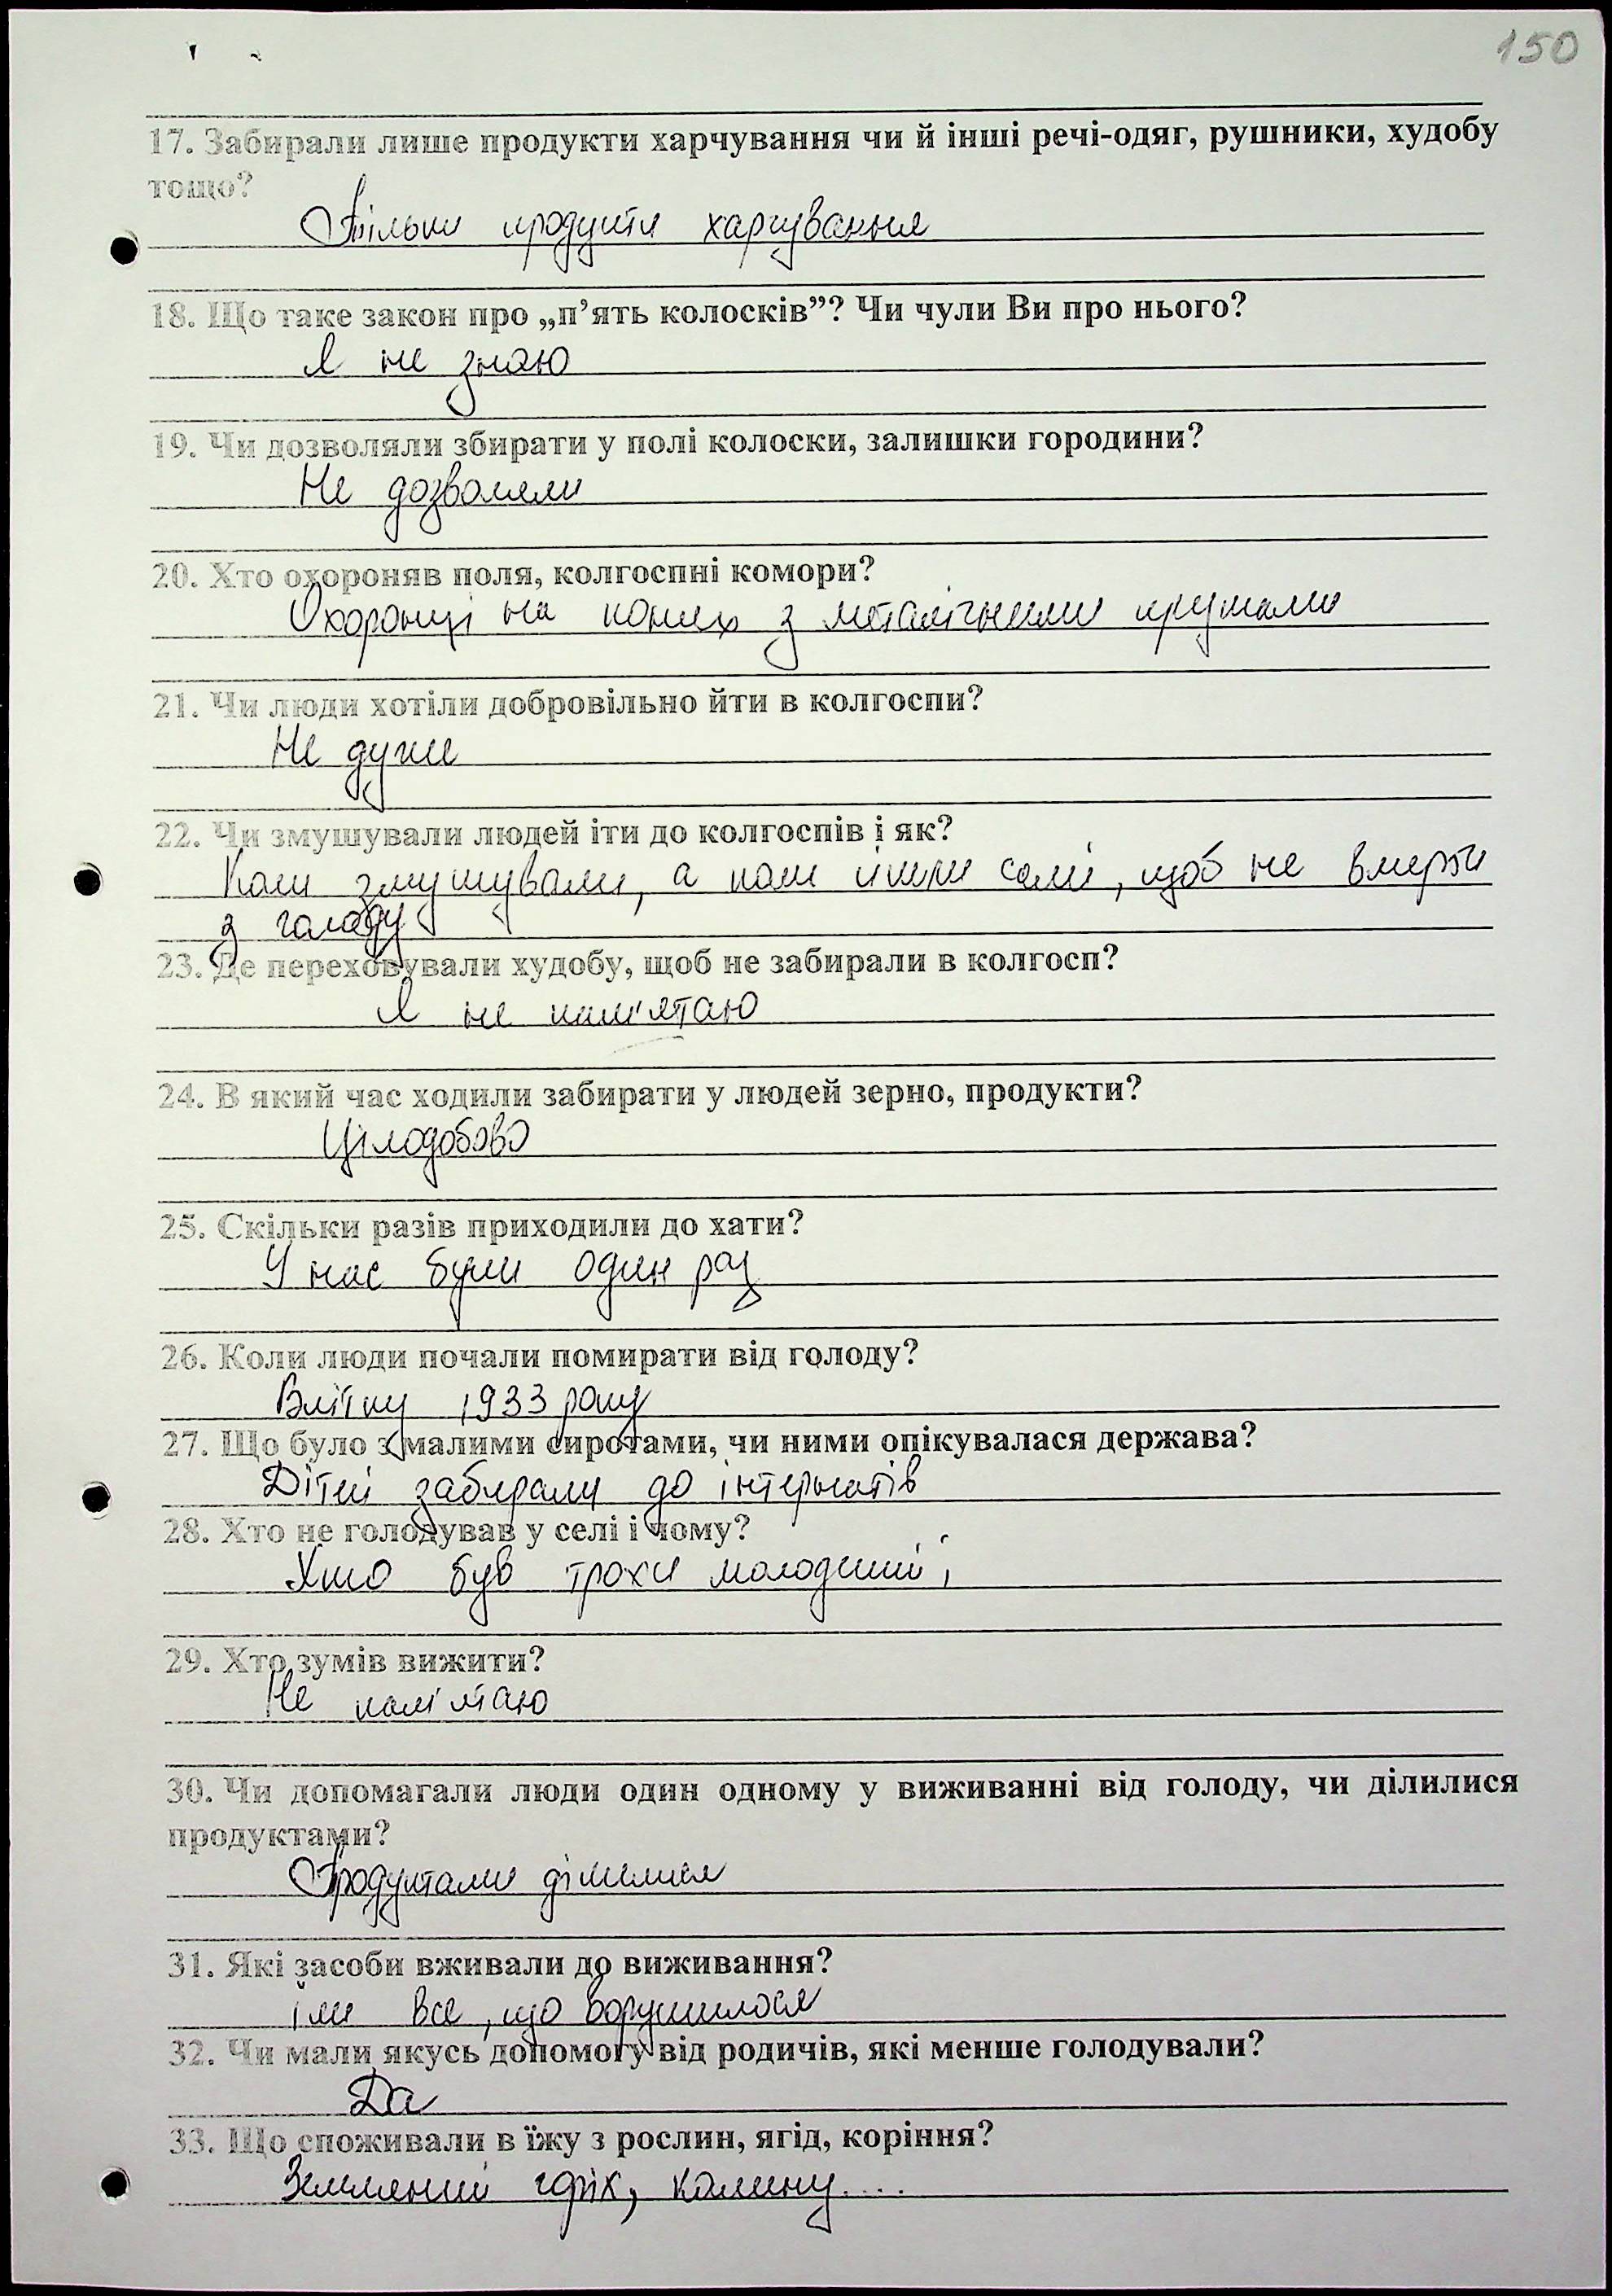 150
17. Забирали лише продукти харчування чи й інші речі-одяг, рушники, худобу
тощо?
Тільки продукти харчування
18. Що таке закон про „п’ять колосків”? Чи чули Ви про нього?
Я не знаю
19. Чи дозволяли збирати у полі колоски, залишки городини?
Не дозволяли
20. Хто охороняв поля, колгоспні комори?
Охоронці на конях з металічними прутами
21. Чи люди хотіли добровільно йти в колгоспи?
Не дуже
22. Чи змушували людей іти до колгоспів і як?
Коли змушували, а коли йшли самі, щоб не вмерти
з голоду
23. Де переховували худобу, щоб не забирали в колгосп?
Я не пам'ятаю
24. В який час ходили забирати у людей зерно, продукти?
Цілодобово
25. Скільки разів приходили до хати?
У нас були один раз
26. Коли люди почали помирати від голоду?
Влітку 1933 року
27. Що було з малими сиротами, чи ними опікувалася держава?
Дітей забирали до інтернатів
28. Хто не голодував у селі і чому?
Хто був трохи молодший
29. Хто зумів вижити?
Не пам'ятаю
30. Чи допомагали люди один одному у виживанні від голоду, чи ділилися
продуктами?
Продуктами ділилися
31. Які засоби вживали до виживання?
їли все, що ворушилося
32. Чи мали якусь допомогу від родичів, які менше голодували?
Да
33. Що споживали в їжу з рослин, ягід, коріння?
Земляний горіх, калину....